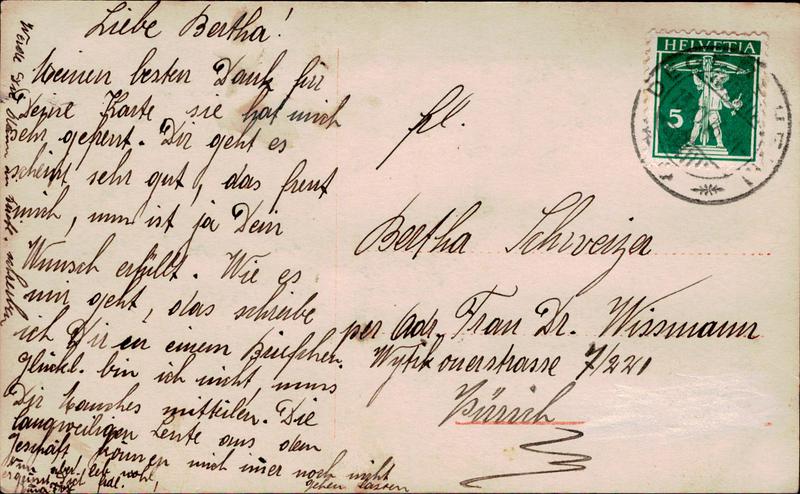 Liebe Bertha!
Meinen besten Dank für
Deine Karte sie hat mich
sehr gefreut. Dir geht es
scheint sehr gut, das freut
mich, nun ist ja Dein
Wunsch erfüllt. Wie es
mir geht, das schreibe
ich Dir in einem Briefchen.
Glückl. bin ich nicht, muss
Dir Manches mitteilen. Die
langweiligen Leute aus dem
Geschäft können mich imer noch nicht
gehen lassen
Nun aber leb wohl
HELVETIA
5
frl.
Bertha Schweizer
per Adr. Frau Dr. Wissmann
Wytikonerstrasse 7/221
Zürich